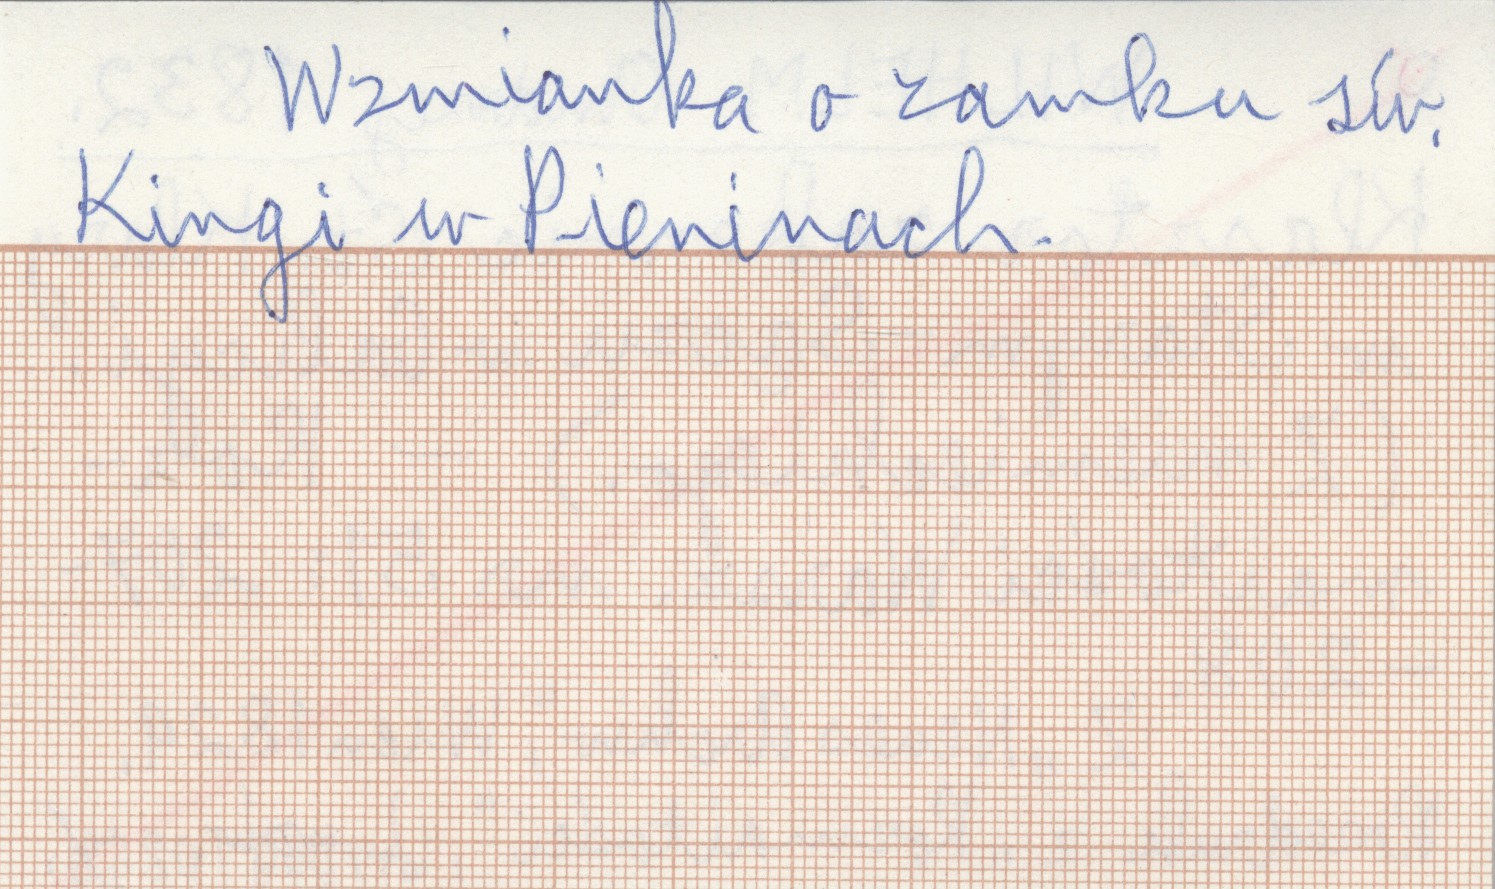 Wzmianka o zamku św.
Kingi w Pieninach.